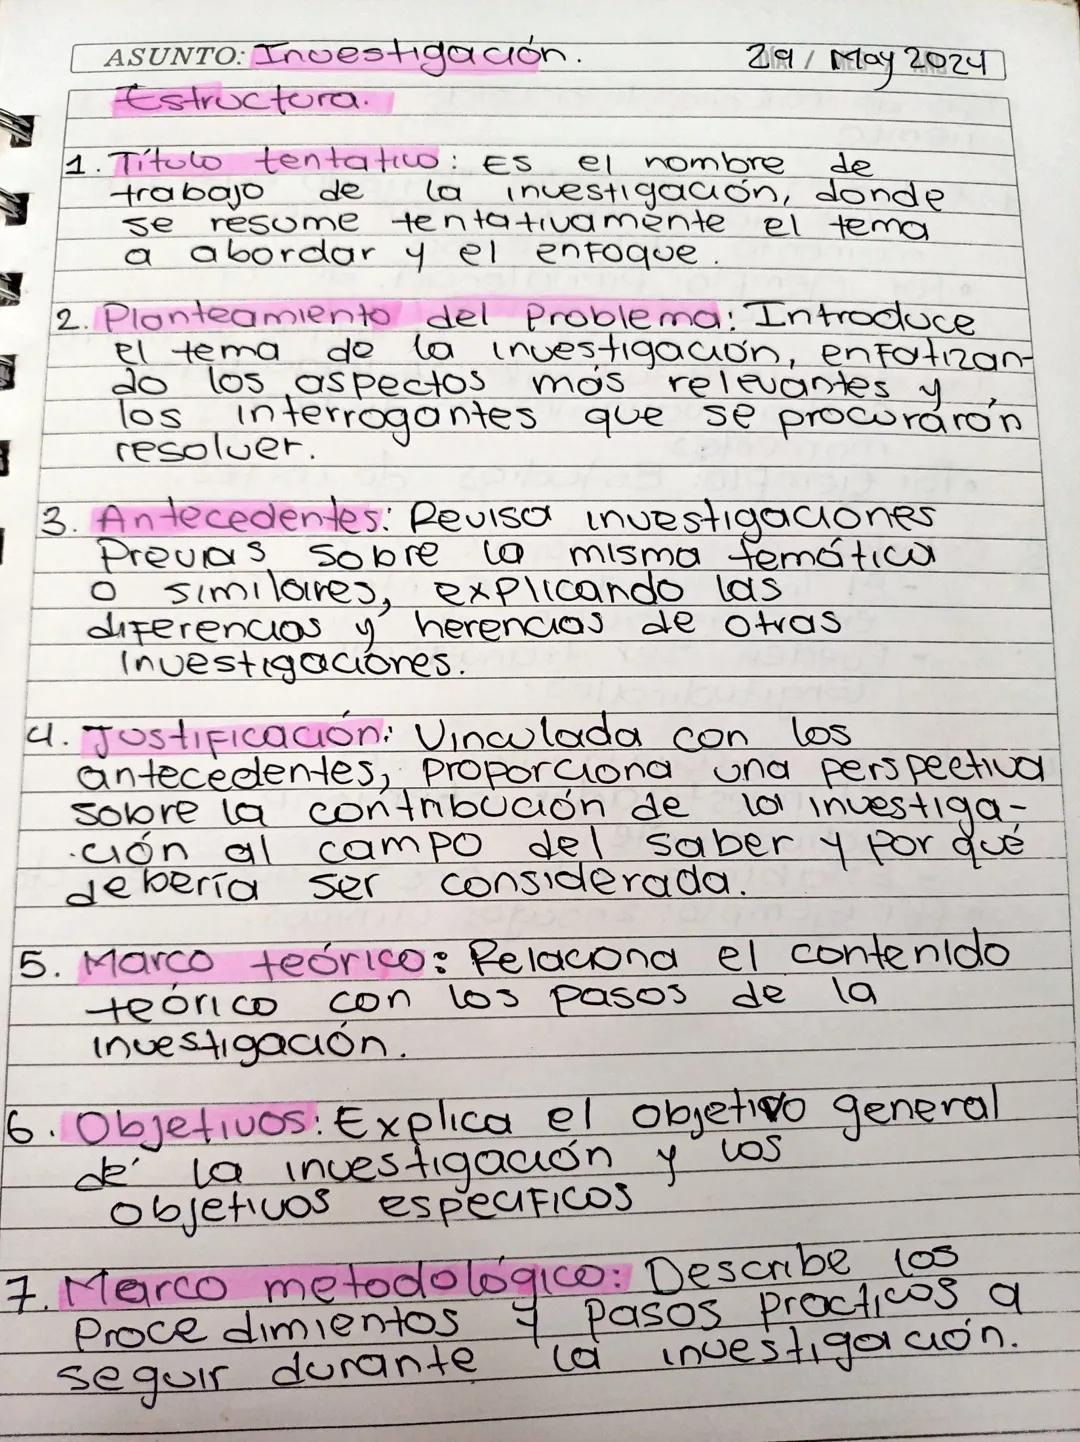 ASUNTO: Investigación. 29/ May 2024
Estructura.
1. Título tentativo: Es el nombre de
trabajo de la investigación, donde
se resume tentativamente el tema
a abordar y el enfoque.
2. Planteamiento del Problema: Introduce
el tema de la investigación, enfatizan-
do los aspectos más relevantes y
los interrogantes que se procurárón
resolver.
3. Antecedentes: Revisa investigaciones
Previas sobre la misma temática
o similares, explicando las
diferencias y herencias de otras
Investigaciones.
4. Justificación: Vinculada con los
antecedentes, proporciona una perspectiva
sobre la contribución de la investiga-
ción al campo del saber y por qué
debería ser considerada.
5. Marco teórico: Relaciona el contenido
teórico con los pasos de la
investigación.
6. Objetivos: Explica el objetivo general
de la investigación y los
objetivos específicos
7. Marco metodológico: Describe los
Procedimientos y pasos prácticos a
seguir durante la investigación.